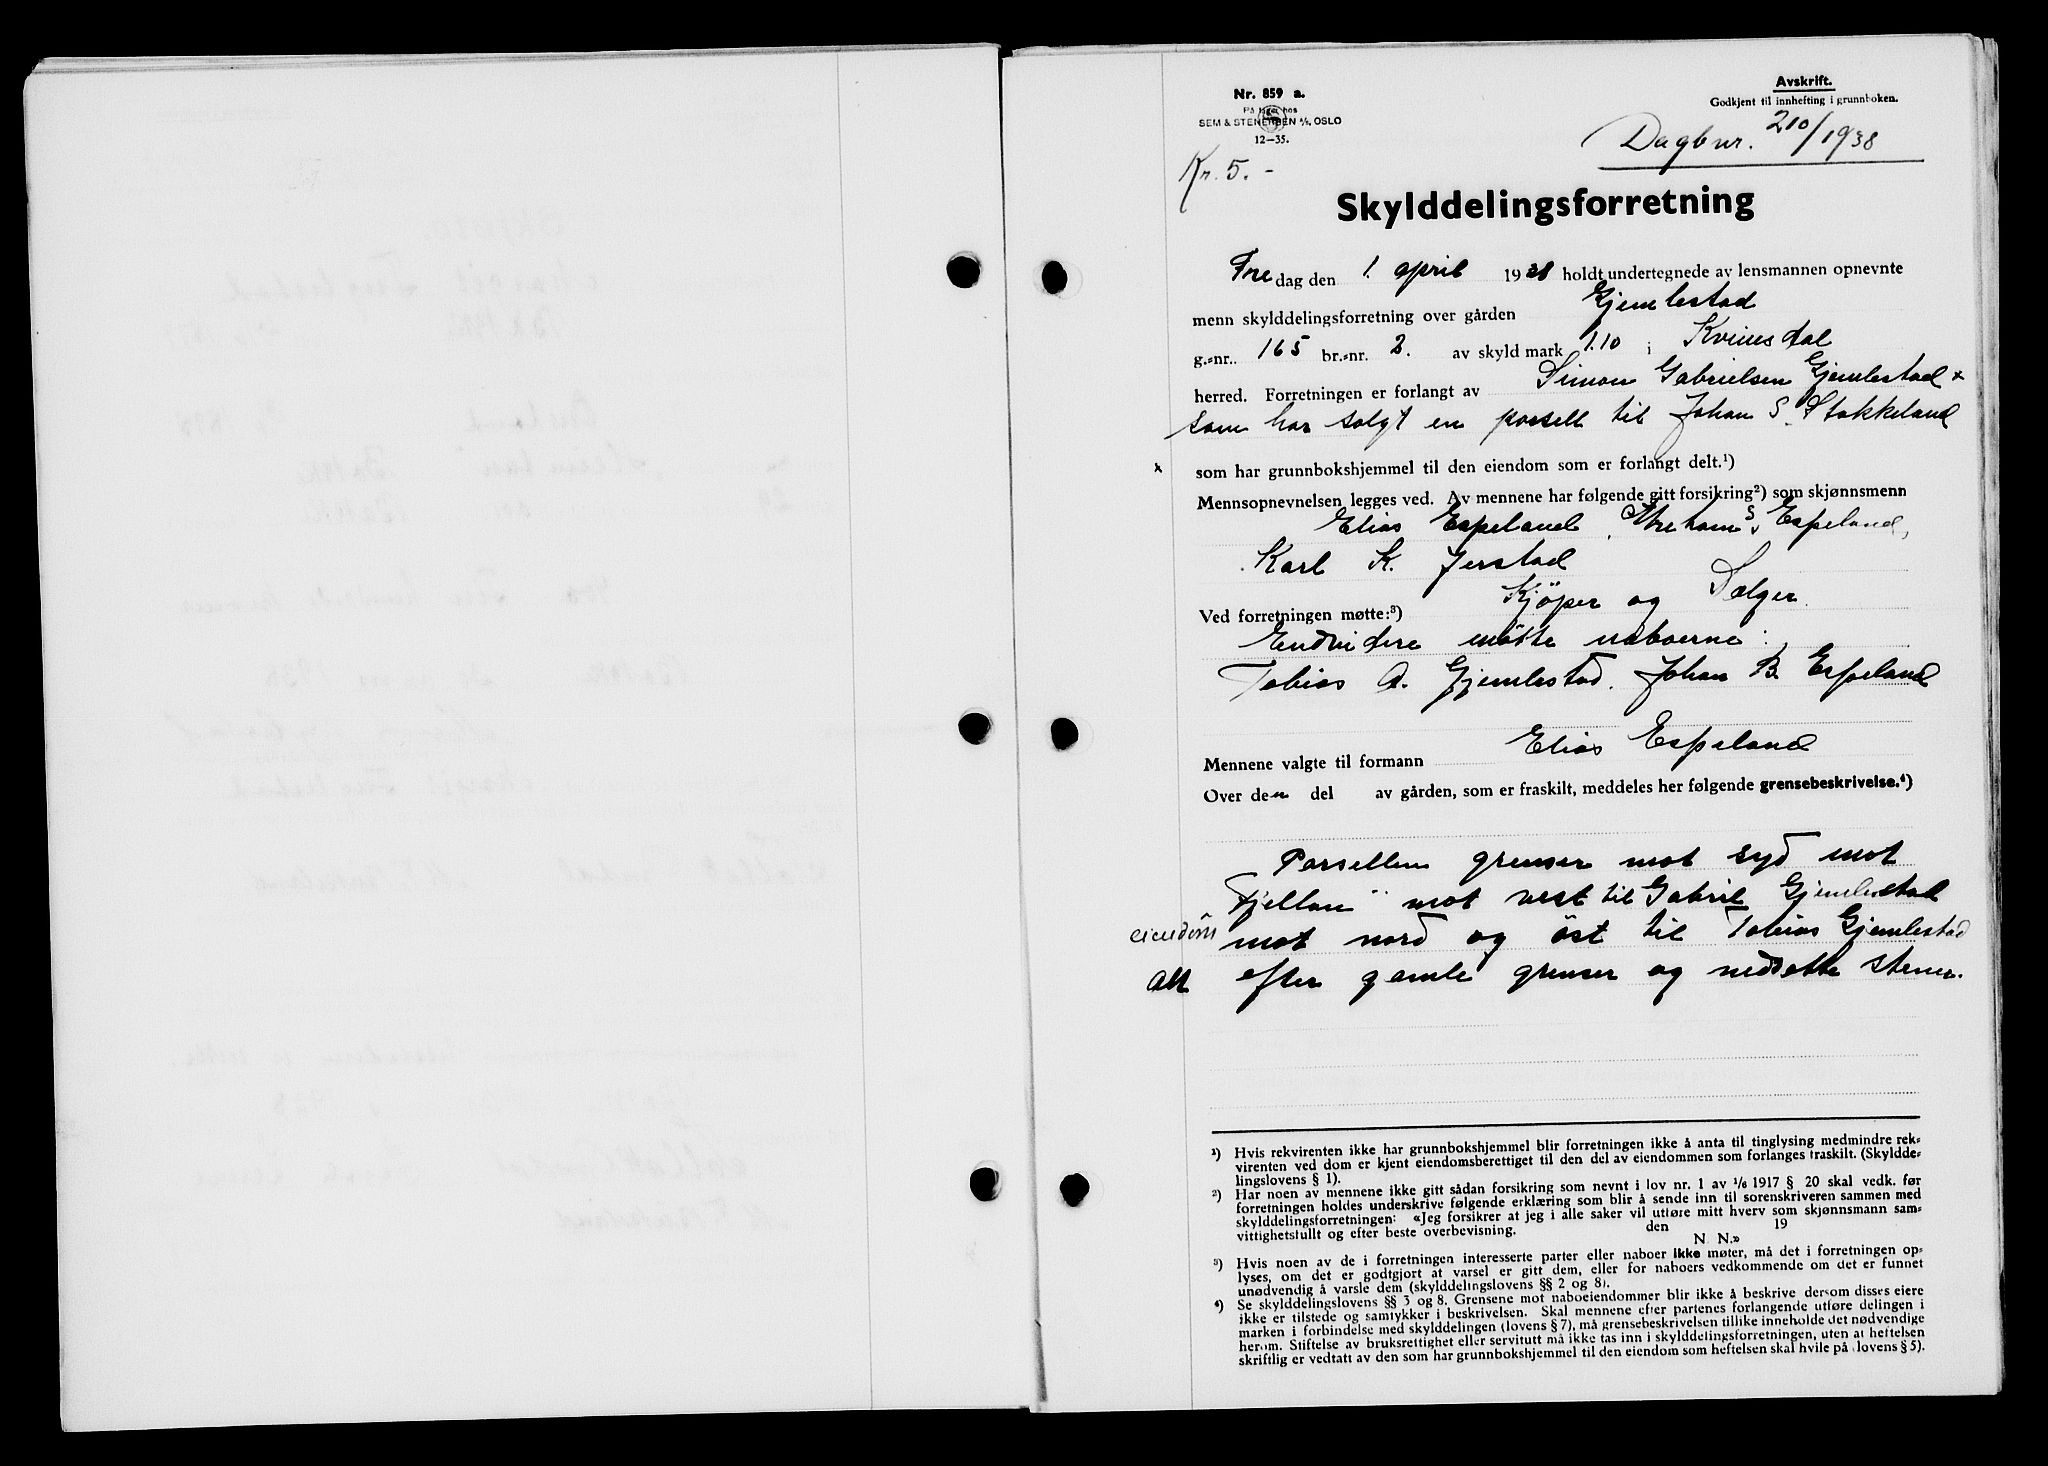 Nr. 859 a.
På lager hos
SEM & STENERSEN A/S, OSLO
12-35.
Avskrift.
Godkjent til innhefting i grunnboken.
Dagbnr. 210/1938
Kr. 5.-
Skylddelingsforretning
Fre dag den 1. april 1938 holdt undertegnede av lensmannen opnevnte
menn skylddelingsforretning over gården Gjemlestad
g.-nr. 165 br.-nr. 2. av skyld mark 1.10 i Kvinesdal
herred. Forretningen er forlangt av Simon Gabrielsen Gjemlestad x
som har solgt en parsell til Johan S. Stokkeland
x som har grunnbokshjemmel til den eiendom som er forlangt delt.¹)
Mennsopnevnelsen legges ved. Av mennene har følgende gitt forsikring²) som skjønnsmenn
Elias Espeland, S. Espeland,
Karl K. Jerstad
Ved forretningen møtte:³) Kjöper og Selger.
Endvidere møtte naboerne:
Tobias A. Gjemlestad. Johan B. Espeland
Mennene valgte til formann Elias Espeland
Over den del av gården, som er fraskilt, meddeles her følgende grensebeskrivelse.⁴)
Parsellen grenser mot syd mot
"Fjellan" mot vest til Gabriel Gjemlestad
eiendom mot nord og öst til Tobias Gjemlestad
alt efter gamle grenser og nedsatte stener.
¹) Hvis rekvirenten ikke har grunnbokshjemmel blir forretningen ikke å anta til tinglysing medmindre rek-
virenten ved dom er kjent eiendomsberettiget til den del av eiendommen som forlanges fraskilt. (Skyldde-
lingslovens § 1).
²) Har noen av mennene ikke gitt sådan forsikring som nevnt i lov nr. 1 av 1/6 1917 § 20 skal vedk. før
forretningen holdes underskrive følgende erklæring som blir å sende inn til sorenskriveren sammen med
skylddelingsforretningen: «Jeg forsikrer at jeg i alle saker vil utføre mitt hverv som skjønnsmann sam-
vittighetsfullt og efter beste overbevisning. den 19
N. N.»
³) Hvis noen av de i forretningen interesserte parter eller naboer ikke møter, må det i forretningen op-
lyses, om det er godtgjort at varsel er gitt dem, eller for naboers vedkommende om det er funnet
unødvendig å varsle dem (skylddelingslovens §§ 2 og 8).
⁴) Se skylddelingslovens §§ 3 og 8. Grensene mot naboeiendommer blir ikke å beskrive dersom disses eiere
ikke er tilstede og samtykker i beskrivelsen. Skal mennene efter partenes forlangende utføre delingen i
marken i forbindelse med skylddelingen (lovens § 7), må grensebeskrivelsen tillike inneholde det nødvendige
herom. Stiftelse av bruksrettighet eller servitutt må ikke tas inn i skylddelingsforretningen, uten at heftelsen
skriftlig er vedtatt av den som har grunnbokshjemmel til den eiendom som heftelsen skal hvile på (lovens § 5).